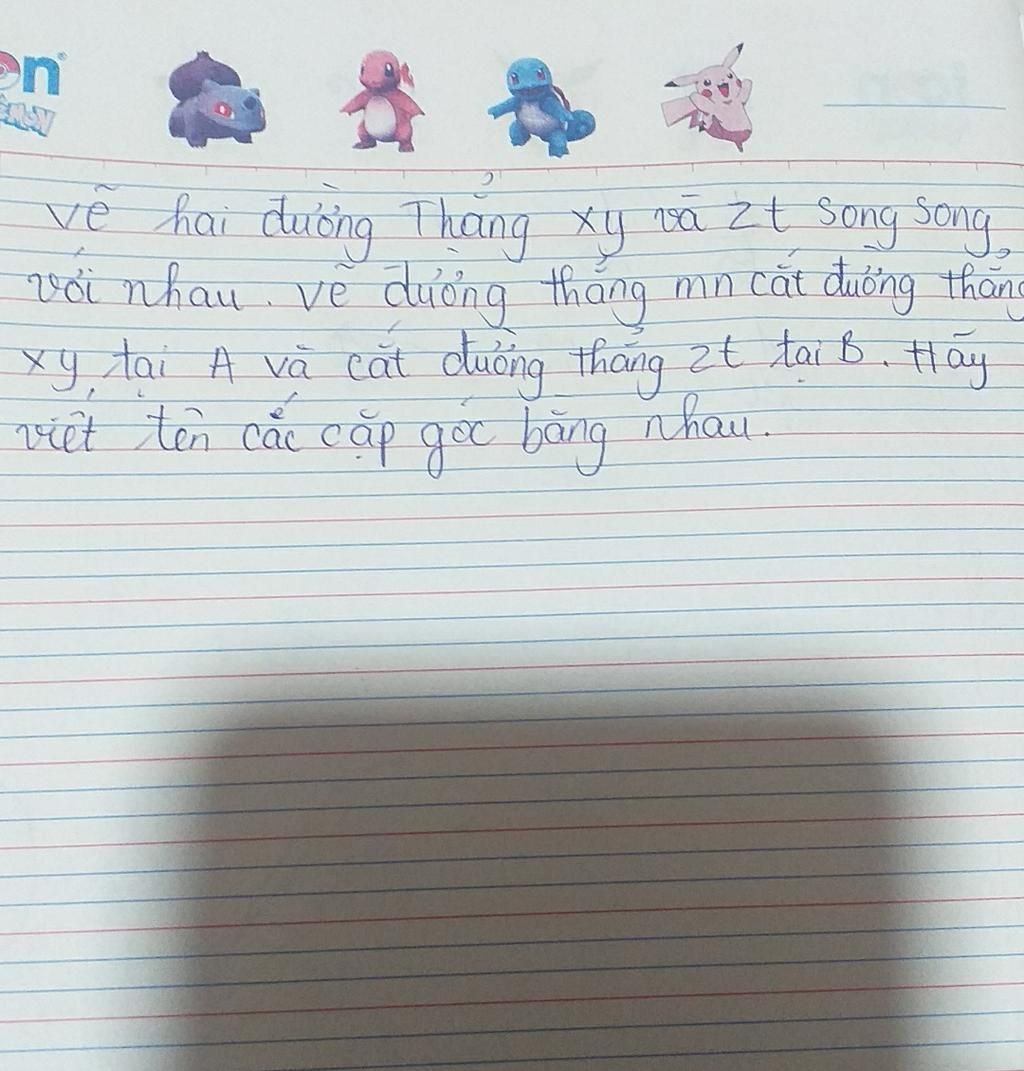 on
vẽ hai đường Thẳng xy và zt song song
với nhau. vẽ đường thẳng mn cắt đường thẳng
xy tại A và cắt đường thẳng zt tại B. Hãy
viết tên các cặp góc bằng nhau.